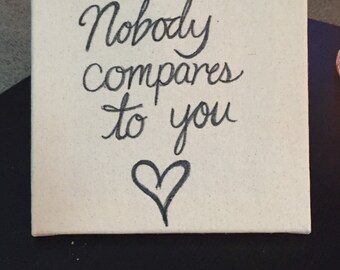 Nobody
compares
to you